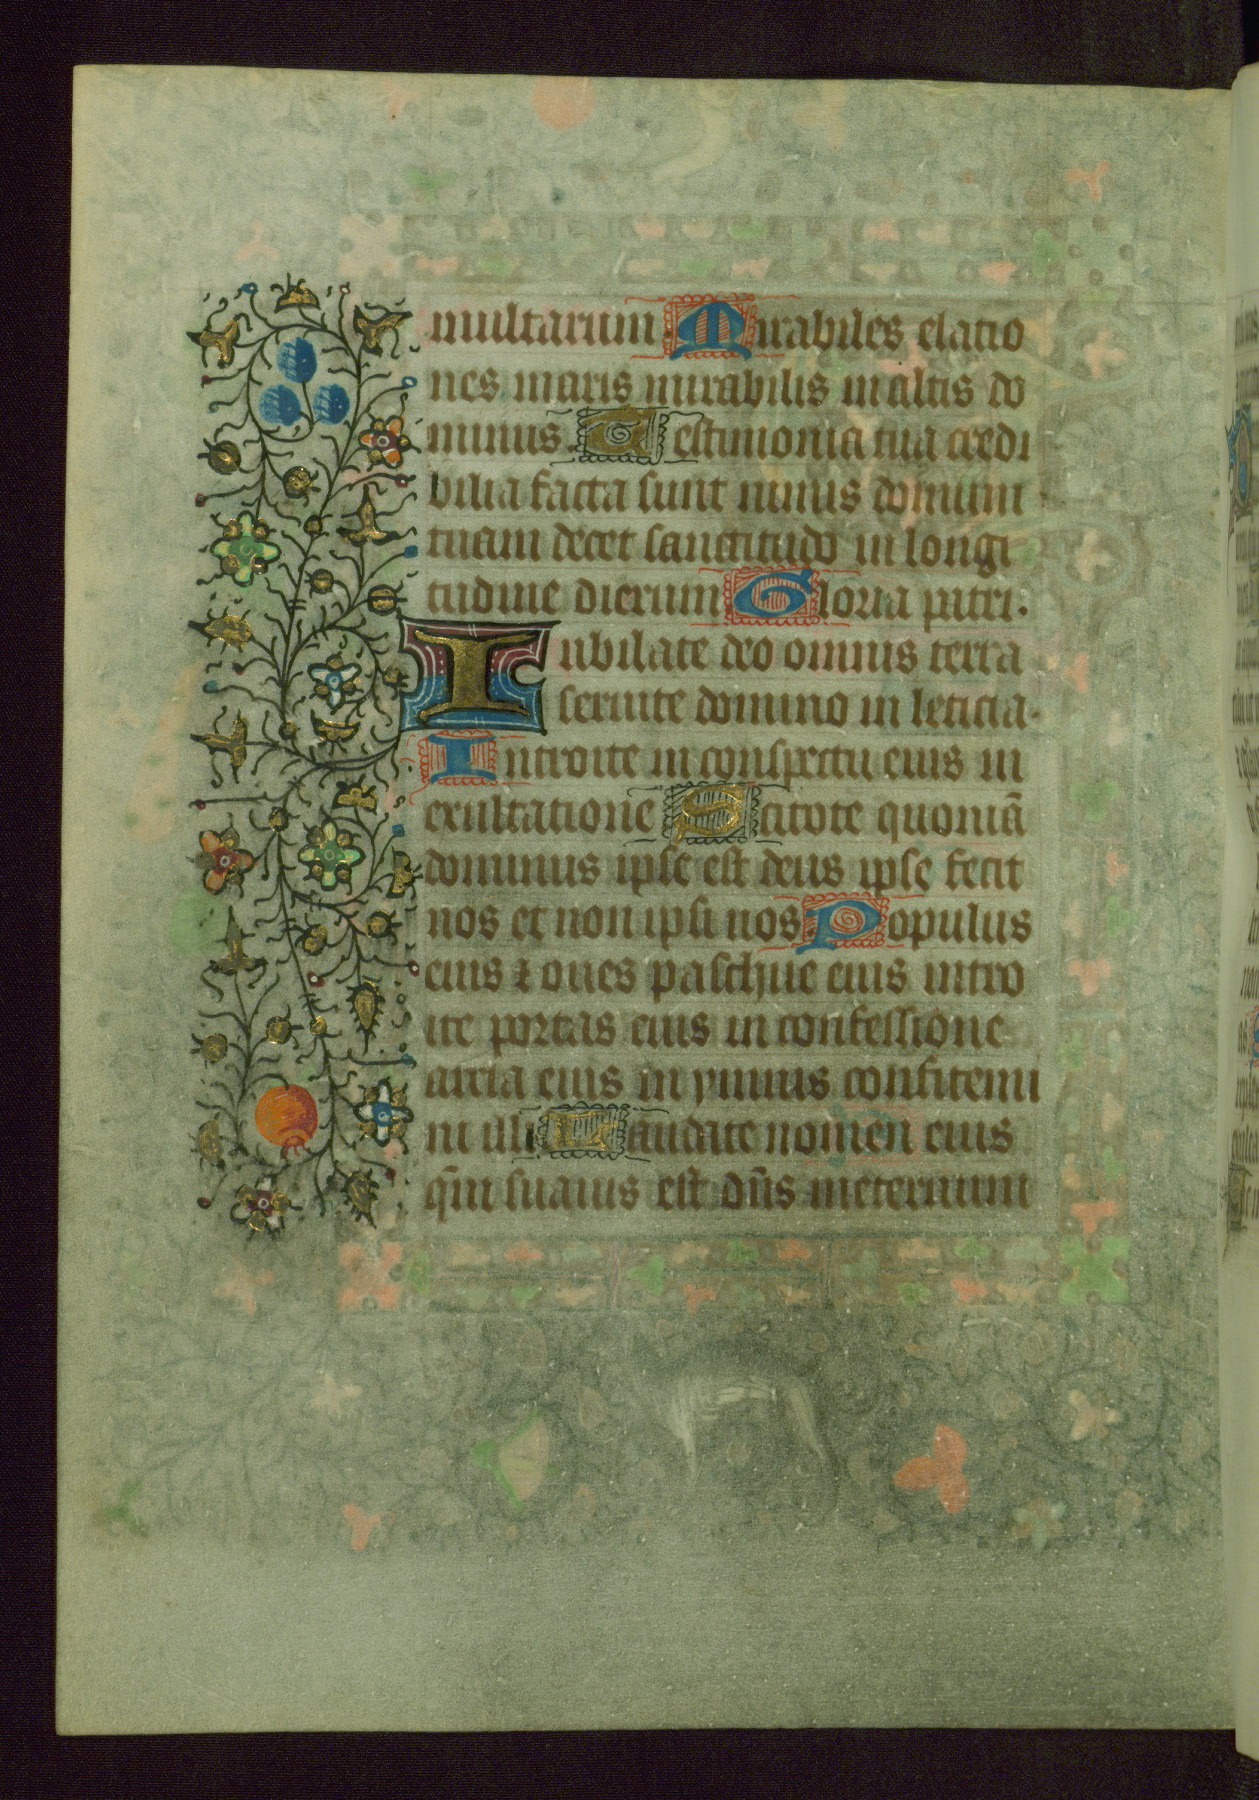 multarum Mirabiles elatio
nes maris mirabilis in altis do
minus. Testimonia tua credi
bilia facta sunt nimis domum
tuam decet sanctitudo in longi
tudine dierum Gloria patri.
Iubilate deo omnis terra
seruite domino in leticia.
Introite in conspectu eius in
exultatione Scitote quoniā
dominus ipse est deus ipse fecit
nos et non ipsi nos Populus
eius ⁊ oues paschue eius intro
ite portas eius in confessione
atria eius in ymnis confitemi
ni illi Laudate nomen eius
qm̄ suauis est dn̄s ineternum